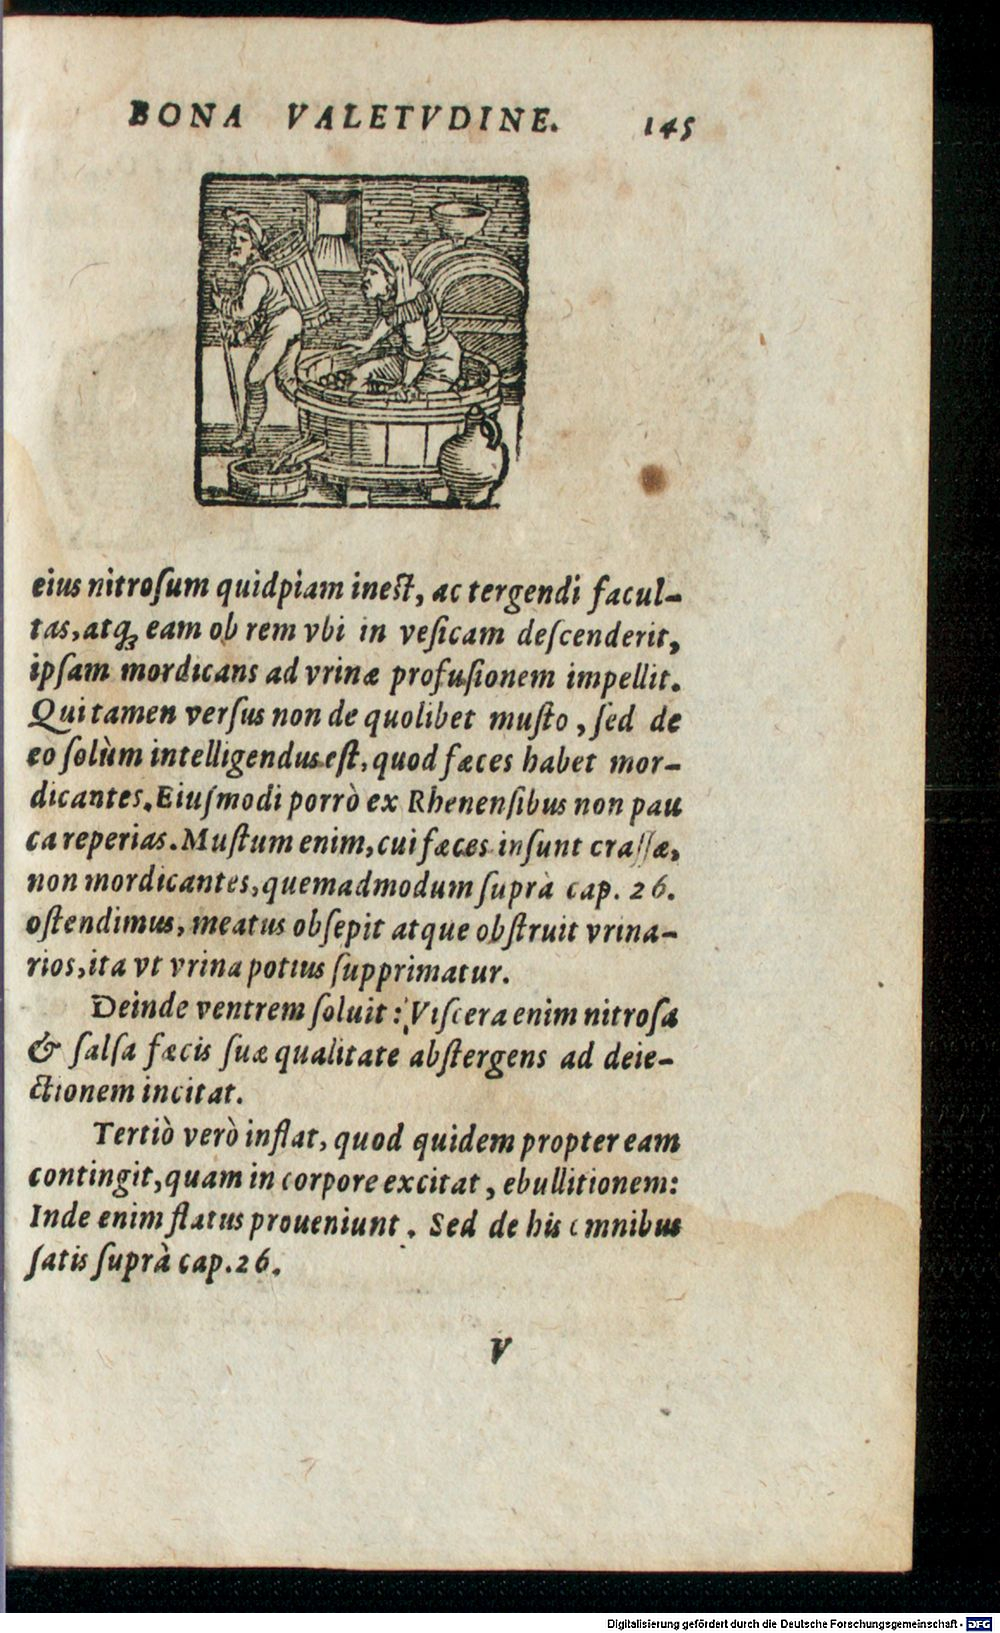 BONA VALETVDINE. 145
eius nitroſum quidpiam ineſt, ac tergendi facul-
tas, atq; eam ob rem vbi in veſicam deſcenderit,
ipſam mordicans ad vrinæ profuſionem impellit.
Qui tamen verſus non de quolibet muſto, ſed de
eo ſolùm intelligendus eſt, quod fæces habet mor-
dicantes. Eiuſmodi porrò ex Rhenenſibus non pau
ca reperias. Muſtum enim, cui fæces inſunt craſſæ,
non mordicantes, quemadmodum ſuprà cap. 26.
oſtendimus, meatus obſepit atque obſtruit vrina-
rios, ita vt vrina potius ſupprimatur.
Deinde ventrem ſoluit: Viſcera enim nitroſa
& ſalſa fæcis ſuæ qualitate abſtergens ad deie-
ctionem incitat.
Tertiò verò inflat, quod quidem propter eam
contingit, quam in corpore excitat, ebullitionem:
Inde enim flatus proueniunt. Sed de his omnibus
ſatis ſuprà cap. 26.
V
Digitalisierung gefördert durch die Deutsche Forschungsgemeinschaft - DFG